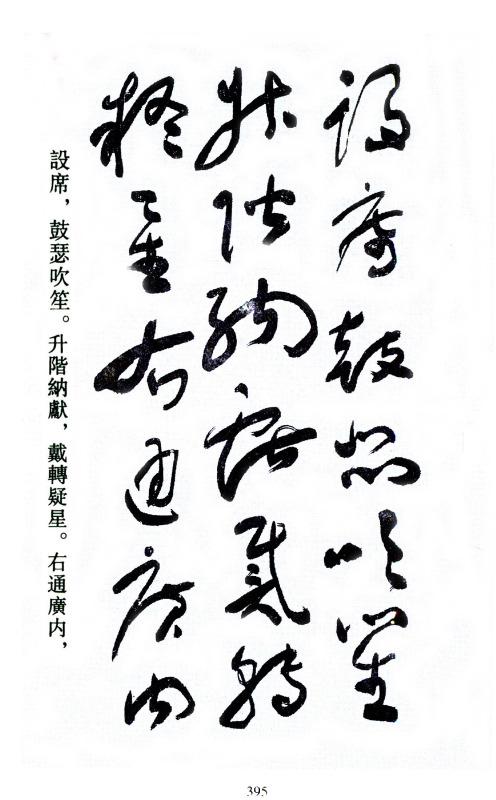 設席鼓瑟吹笙
升階納獻戴轉
疑星右通廣内
設席，鼓瑟吹笙。升階納獻，戴轉疑星。右通廣内，
395